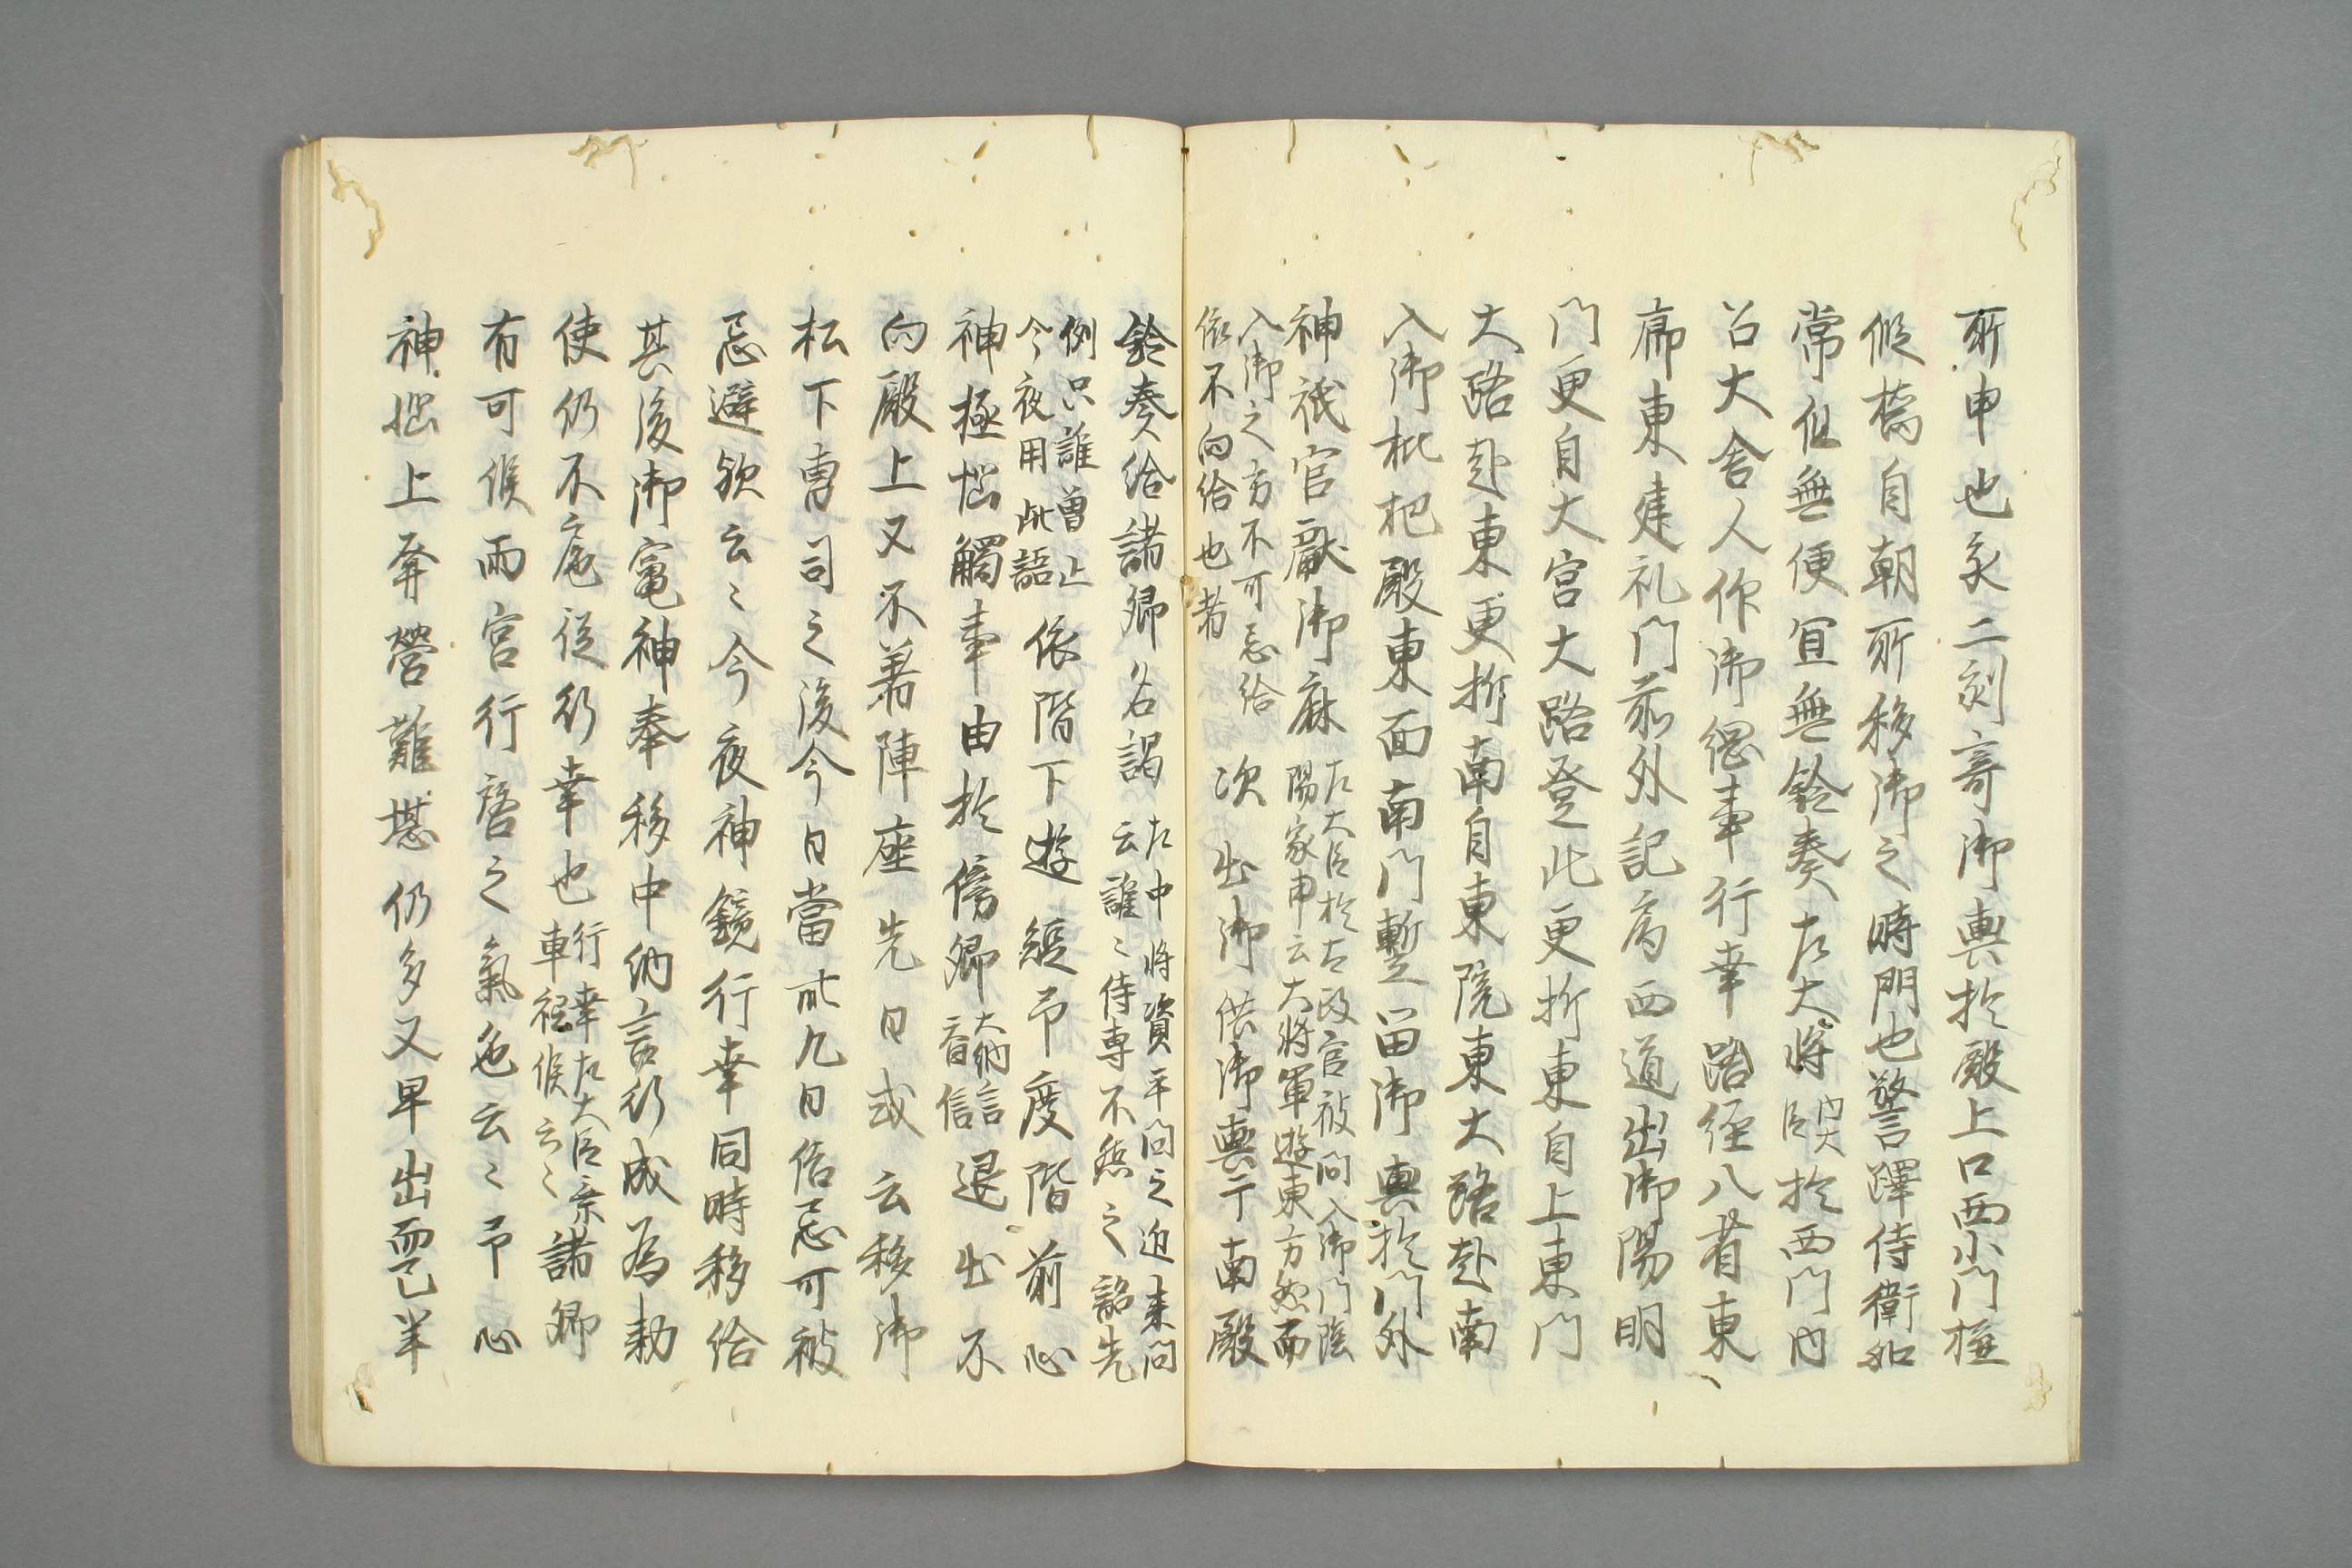 所申也亥二剋寄御輿於殿上口西小門極
假橋自朝所移御之時門也警蹕侍衛如
常但無便宜無鈴奏左大将内大臣於西門内
召大舎人作御綱事行幸路径八省東
廊東建礼門前外記庁西道出御陽明
門更自大宮大路登此更折東自上東門
大路赴東更折南自東院東大路赴南
入御枇杷殿東面南門暫留御輿於門外
神祇官献御麻左大臣於太政官被問入御門陰
陽家申云大将軍遊東方然而
入御之方不可忌給
依不向給也者次出御供御輿于南殿
鈴奏給諸卿名謁左中将資平問之迫来問
云誰々侍専不然之詔先
例只誰曽止
今夜用此語依階下遊縦予度階前心
神極悩觸事由於傍卿大納言
斉信退出不
向殿上又不着陣座先日或云移御
松下曹司之後今日當卌九日倍忌可被
忌避歟云々今夜神鏡行幸同時移給
其後御竃神奉移中納言行成為勅
使仍不扈従行幸也行幸左大臣乗
車祗候云々諸卿
有可候両宮行啓之氣色云々予心
神悩上奔營難堪仍多又早出而已半